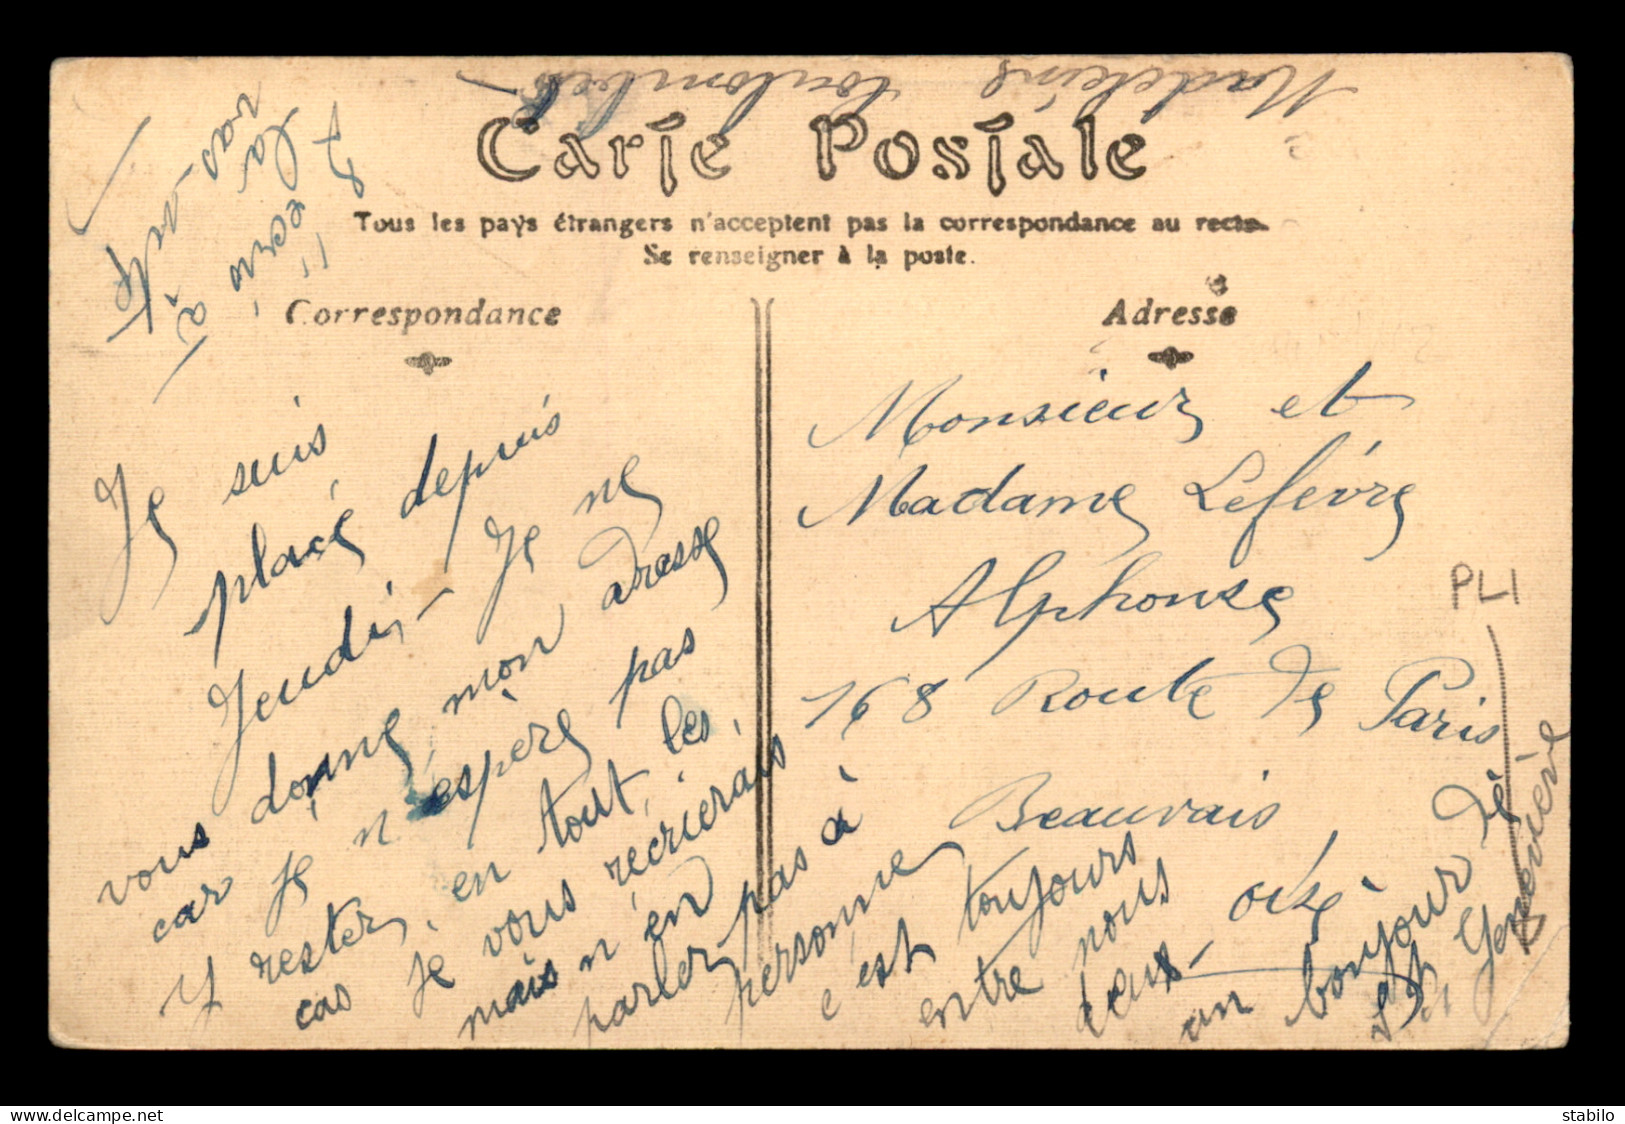 Madeleine
Carte Postale
Tous les pays étrangers n'acceptent pas la correspondance au recto.
Se renseigner à la poste.
Correspondance
Adresse
Je suis
placé depuis
Jeudi - Je ne
vous donne mon adresse
car je n'espère pas
y rester, en tout les
cas je vous récrierais
mais n'en
parler pas à
personne
c'est toujours
entre nous
deux -
un bonjour de
Genevière
Monsieur et
Madame Lefèvre
Alphonse
168 Route de Paris
Beauvais
Oise
PL1
l'écris à